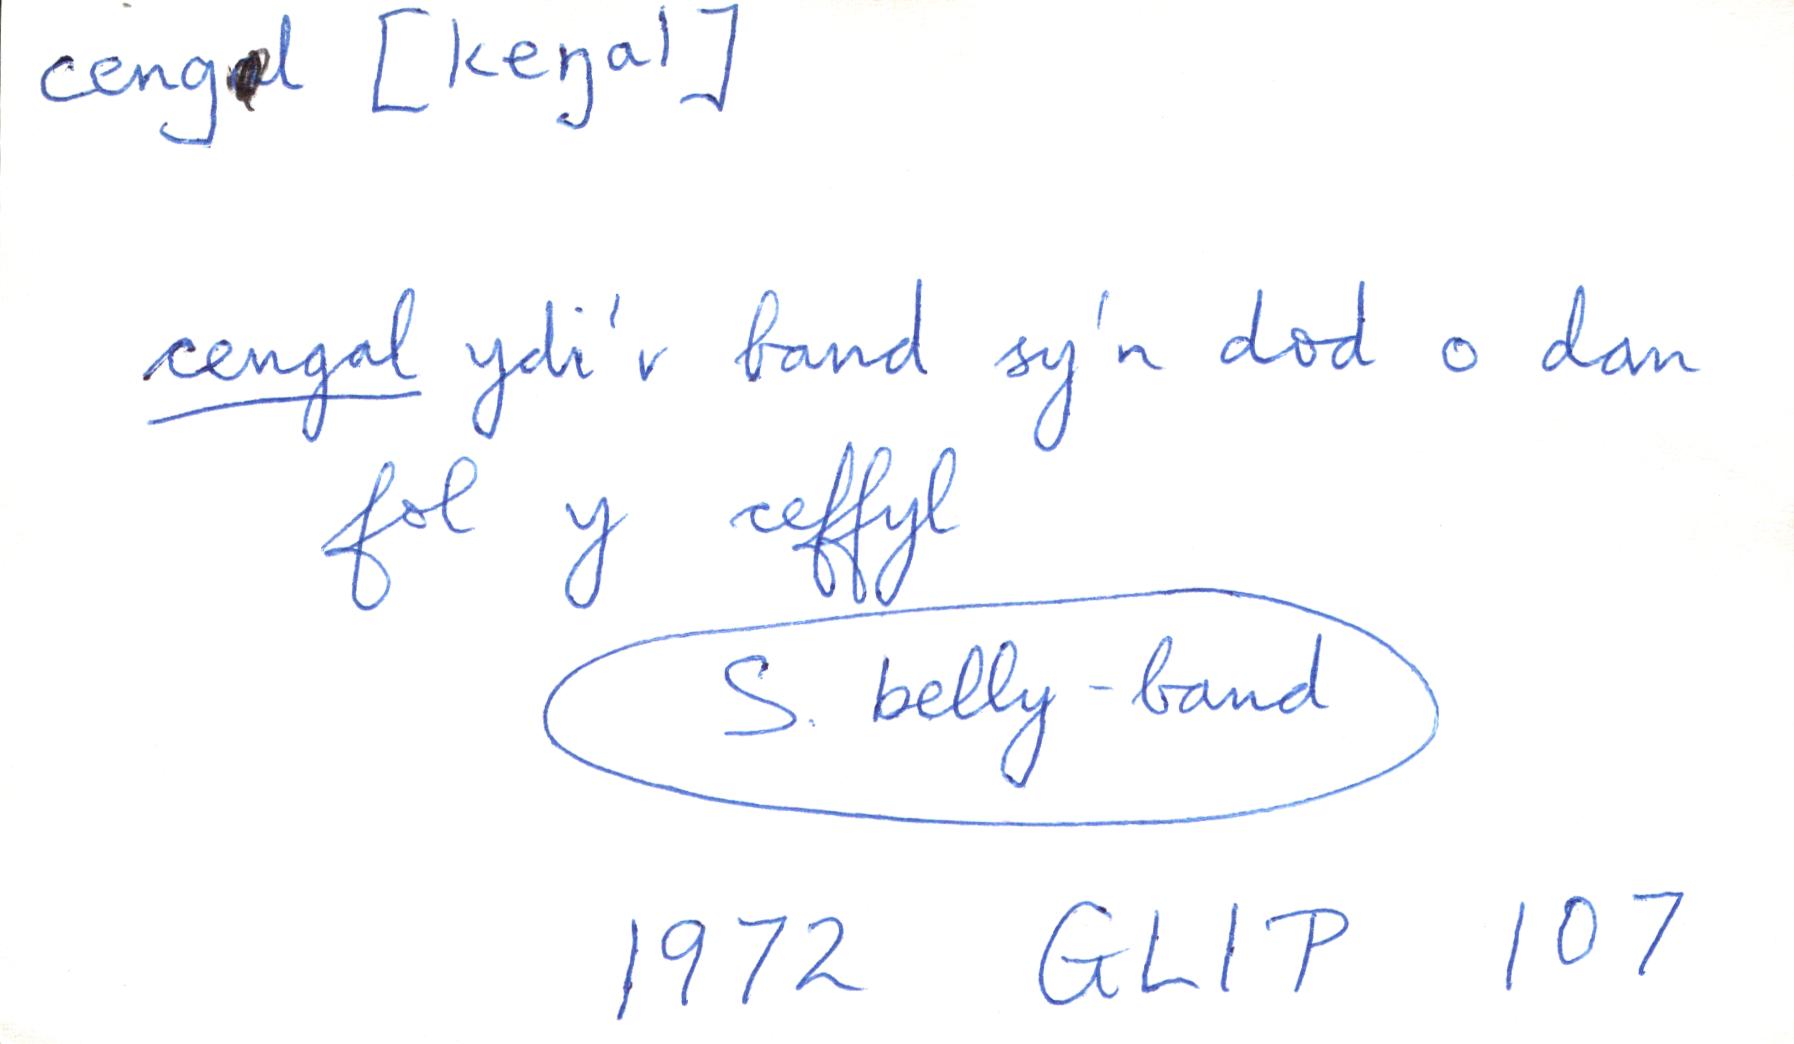 cengal [keŋal]
cengal ydi'r band sy'n dod o dan
fol y ceffyl
S. belly-band
1972 GLIP 107